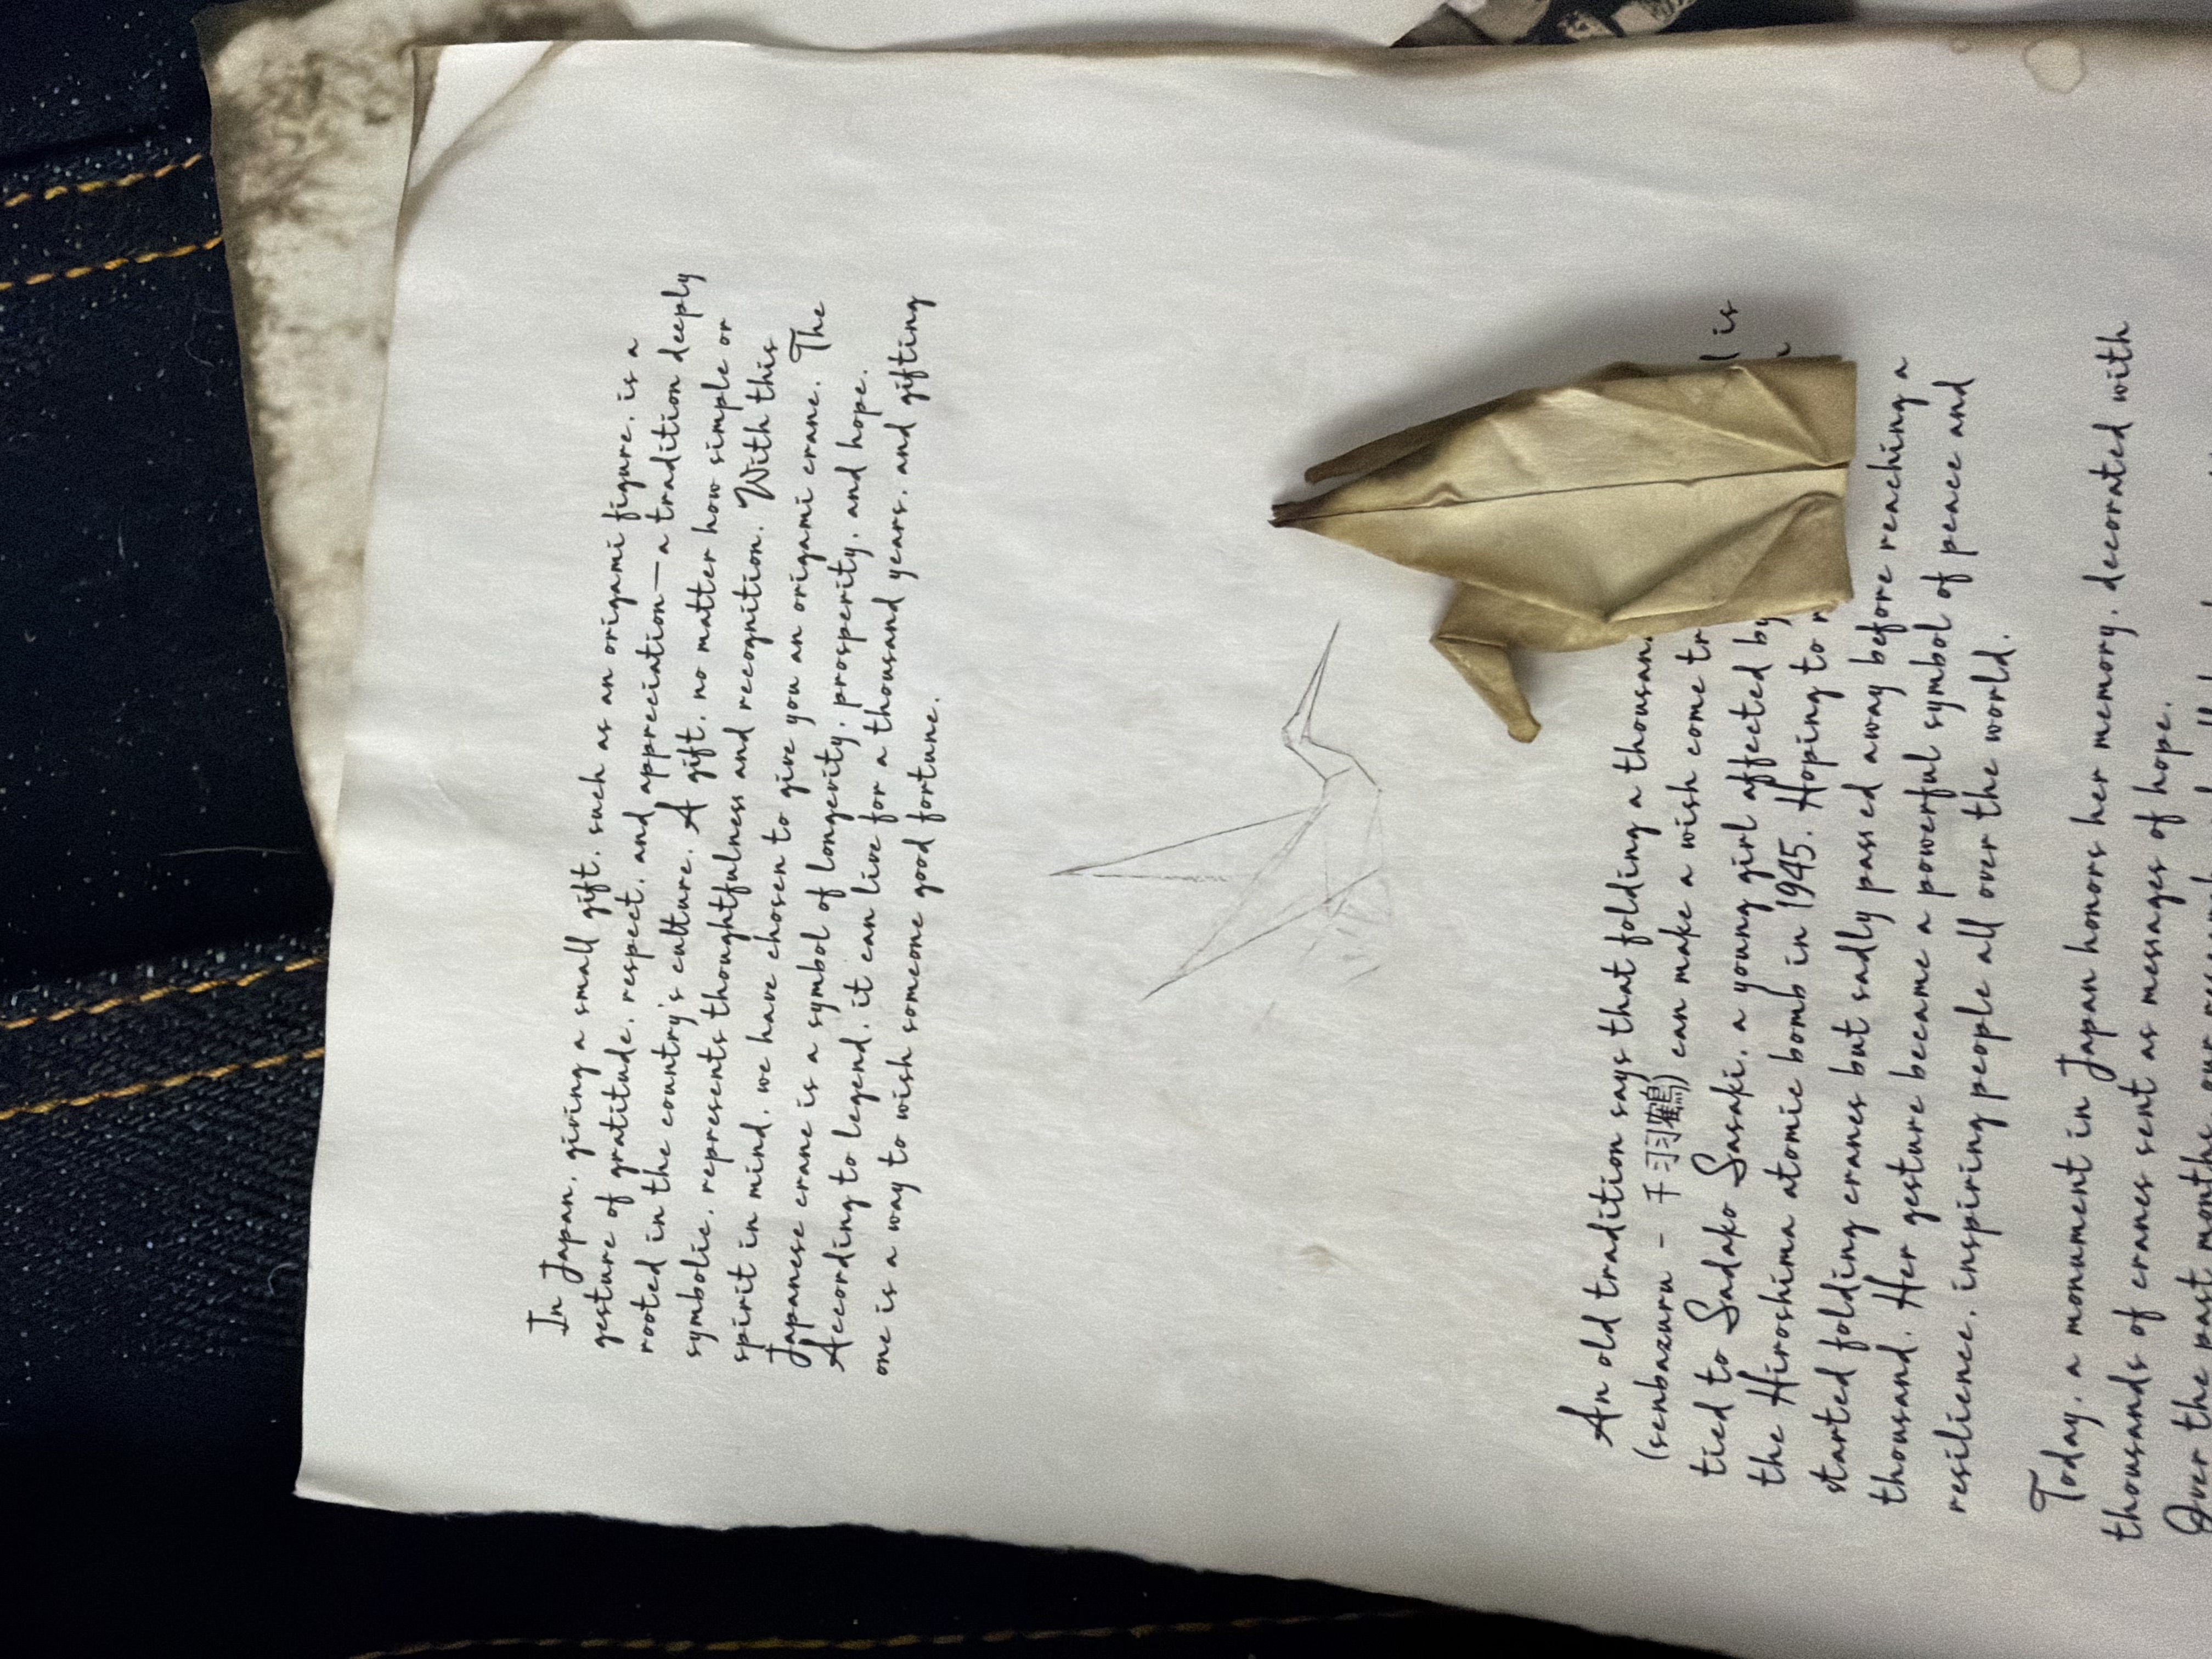 In Japan, giving a small gift, such as an origami figure, is a
gesture of gratitude, respect, and appreciation—a tradition deeply
rooted in the country's culture. A gift, no matter how simple or
symbolic, represents thoughtfulness and recognition. With this
spirit in mind, we have chosen to give you an origami crane. The
Japanese crane is a symbol of longevity, prosperity, and hope.
According to legend, it can live for a thousand years, and gifting
one is a way to wish someone good fortune.
An old tradition says that folding a thousand
(senbazuru - 千羽鶴) can make a wish come is
tied to Sadako Sasaki, a young girl affected by
the Hiroshima atomic bomb in 1945. Hoping to
started folding cranes but sadly passed away before reaching a
thousand. Her gesture became a powerful symbol of peace and
resilience, inspiring people all over the world.
Today, a monument in Japan honors her memory, decorated with
thousands of cranes sent as messages of hope.
Over the past months our